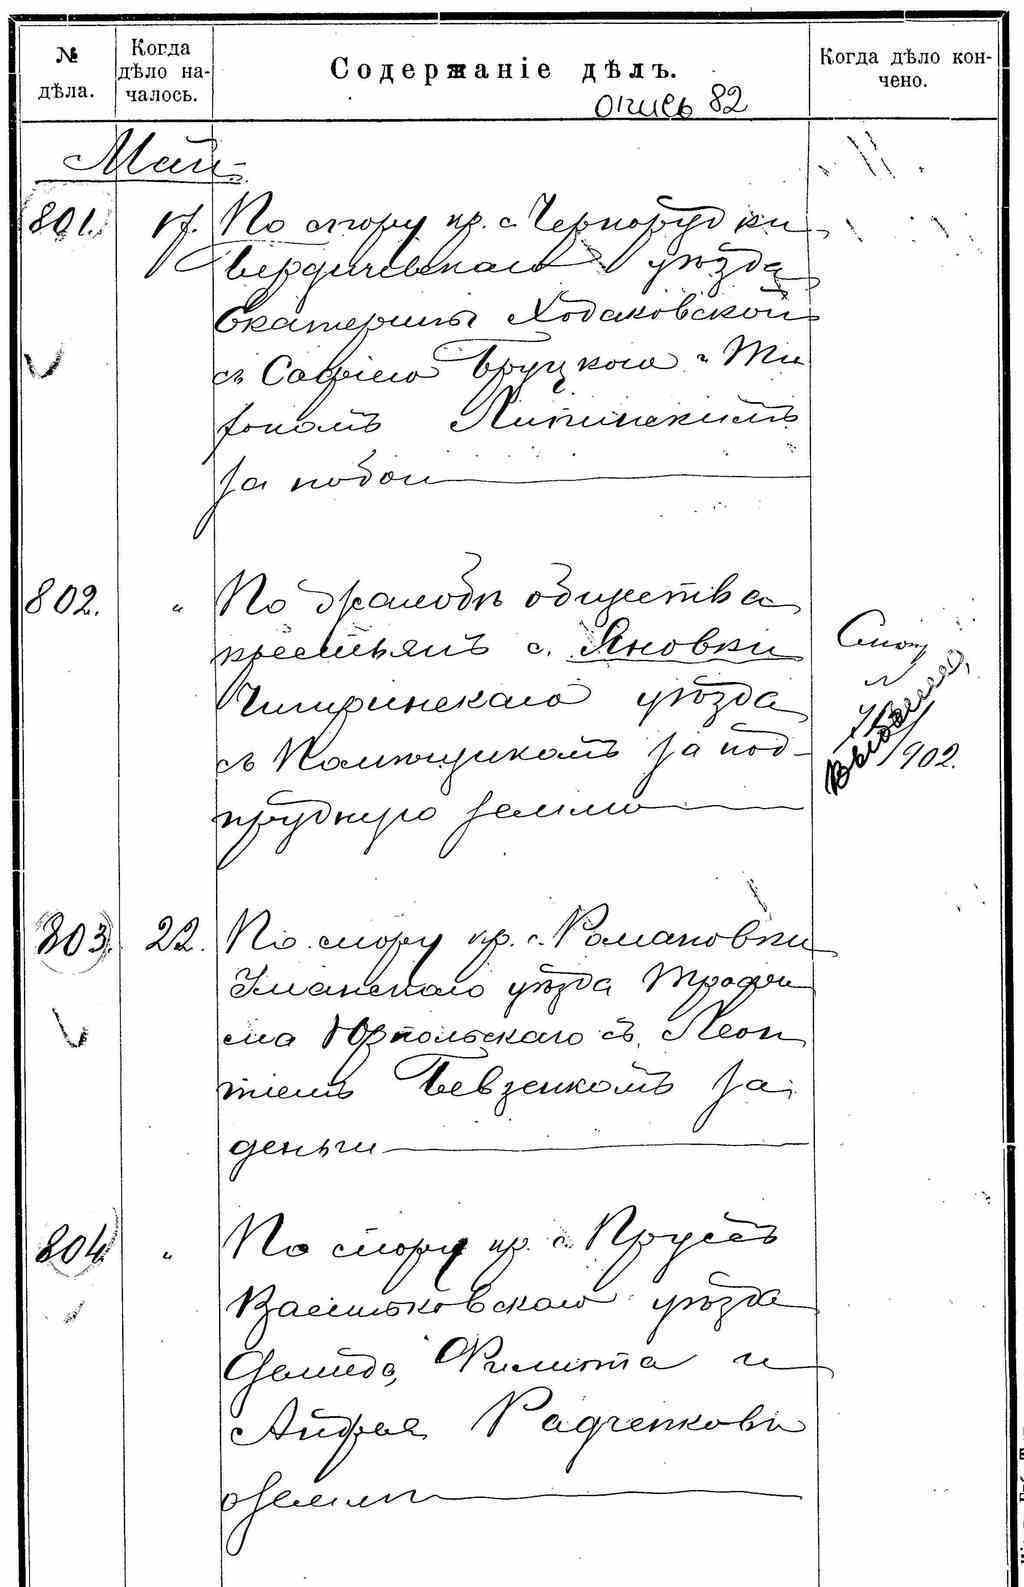 № дѣла.
Когда дѣло началось.
Содержаніе дѣлъ.
Когда дѣло кончено.
опись 82
Май
801. 17. По спору кр. с. Чернорудки
Бердичевскаго уѣзда
Екатерины Ходаковской
съ Софіею Бруцкою и
фономъ Липинскимъ
за побои
802. " По жалобѣ общества
крестьянъ с. Яновки
Чигиринскаго уѣзда
съ Помѣщикомъ за под-
прудную землю
Выбыло
902.
803. 22. По спору кр. с. Романовки
Уманскаго уѣзда Трофи
ма Юрпольскаго съ Леон
тіемъ Бевзенкомъ за
деньги
804. " По спору кр. с. Прусъ
Васильковскаго уѣзда
Филиппа и
Андрея Радченковъ
о землѣ